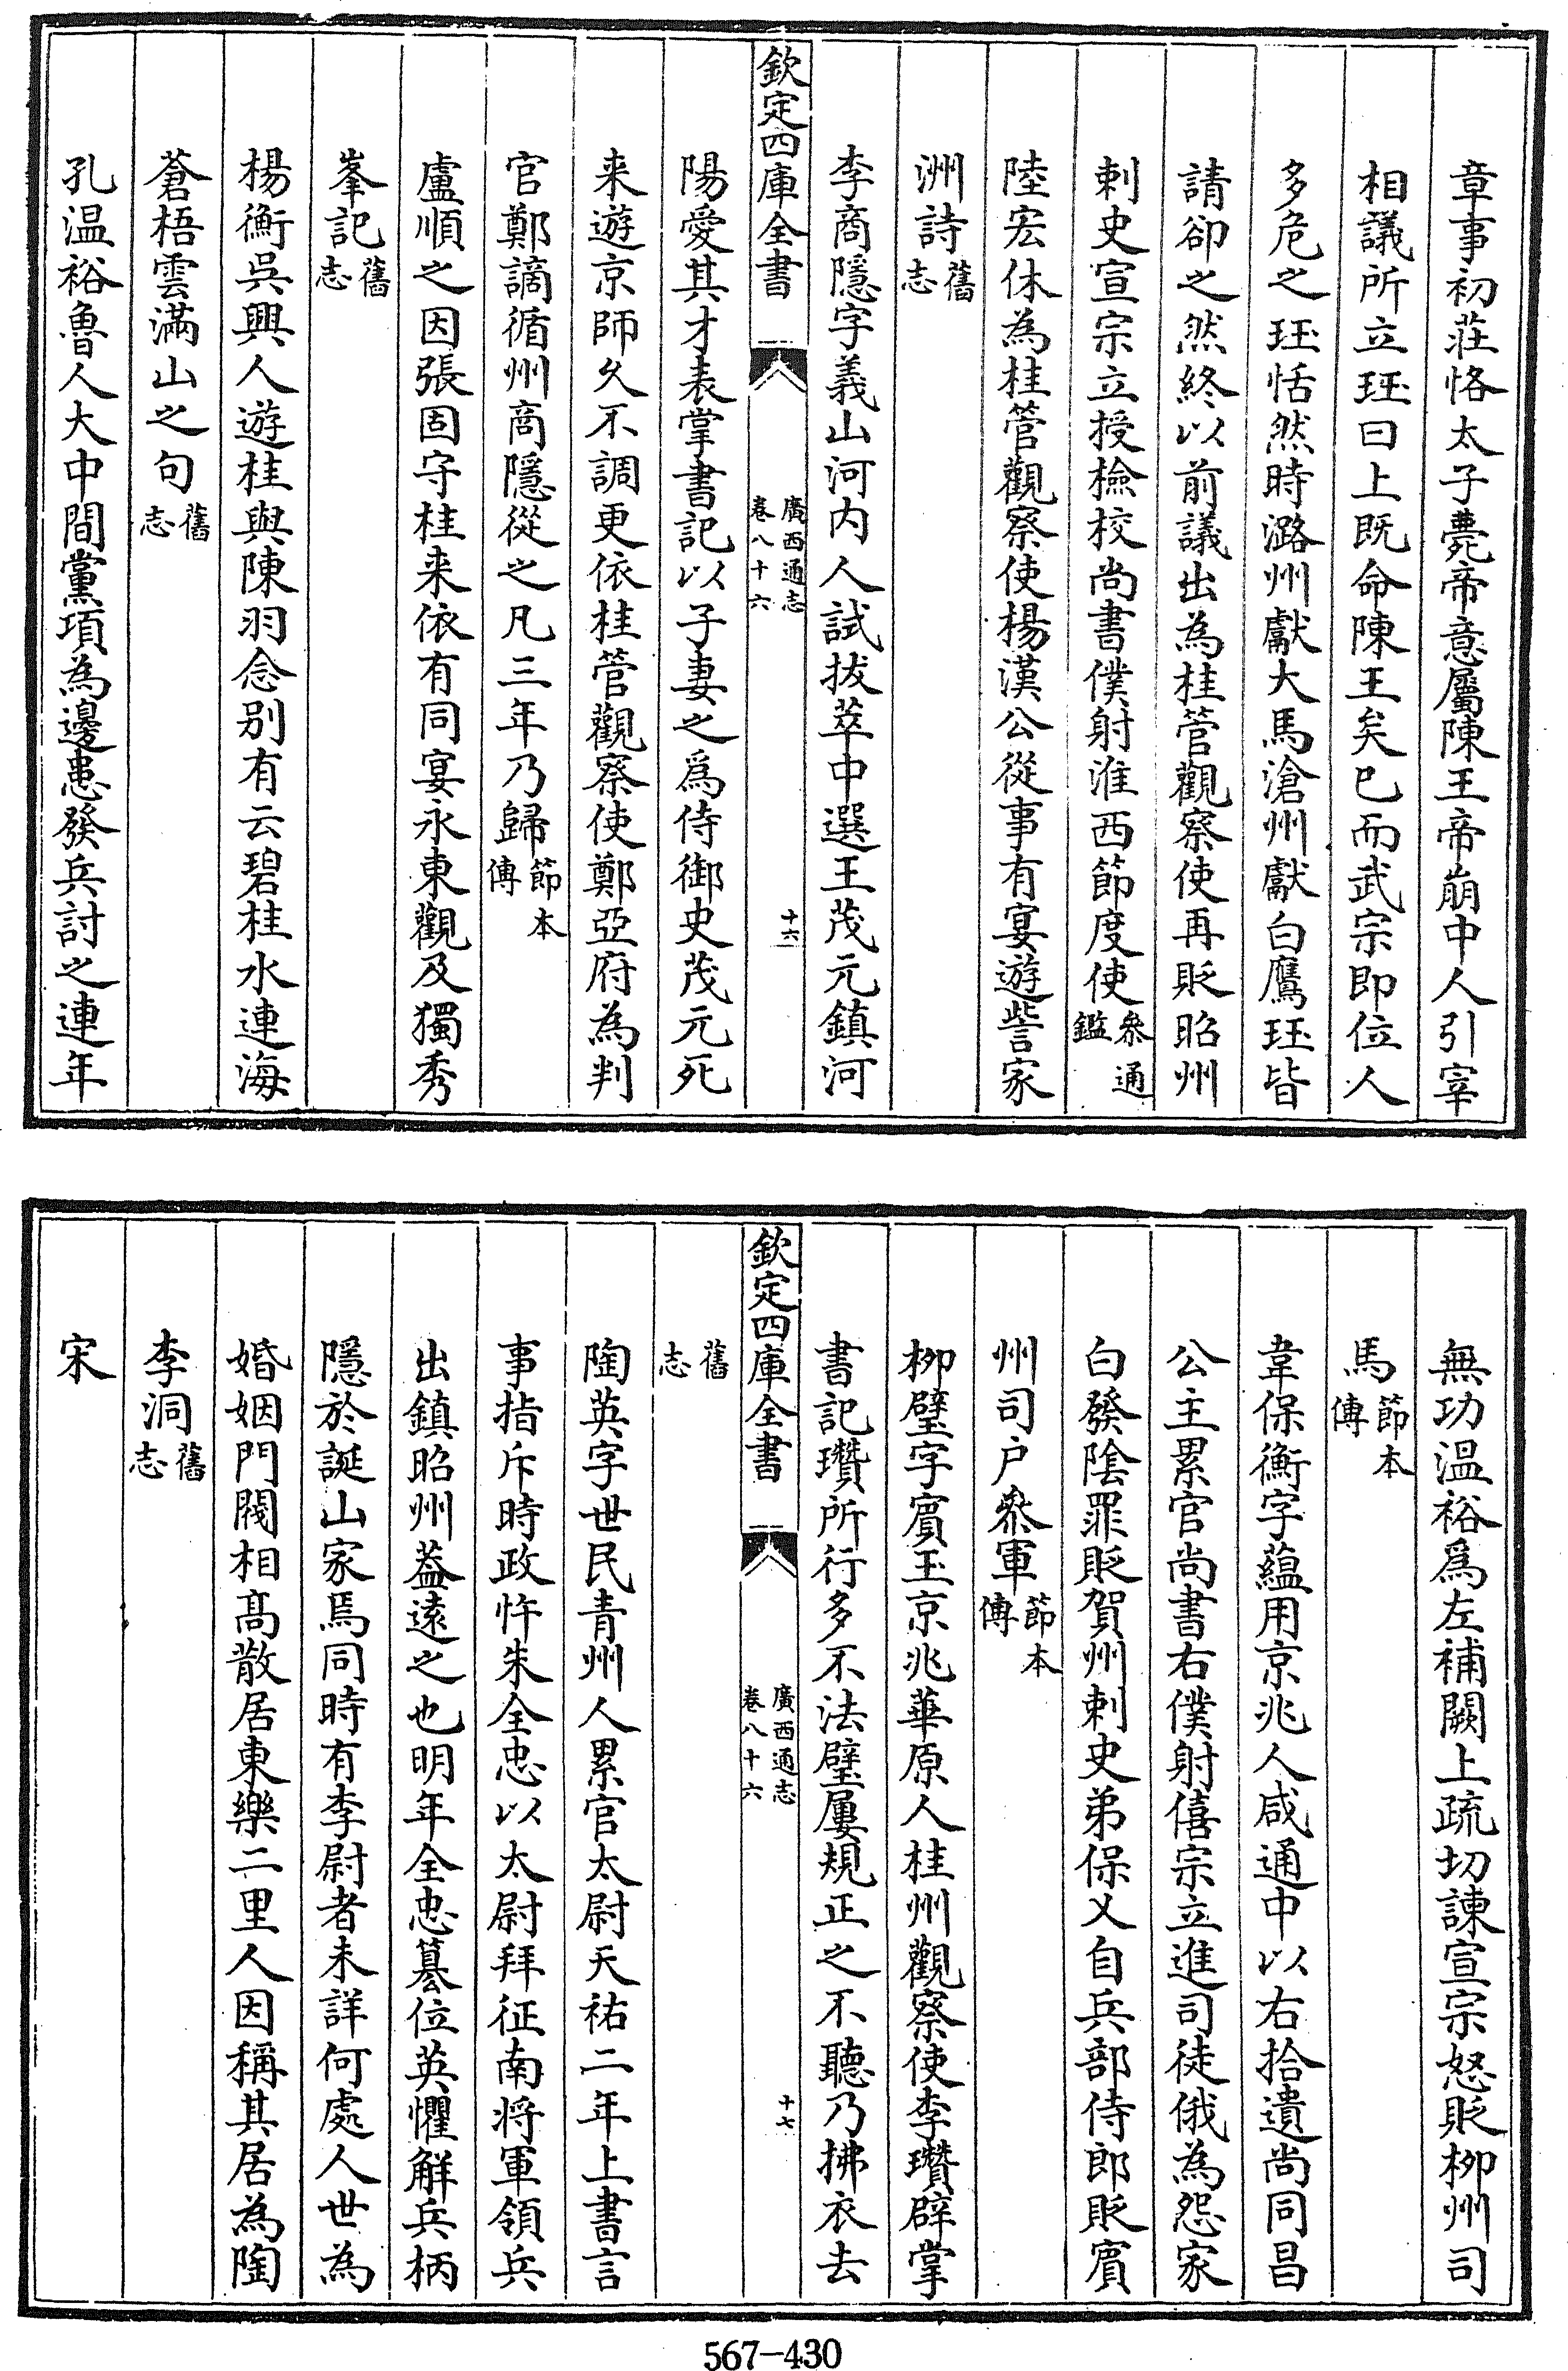 章事初莊恪太子薨帝意屬陳王帝崩中人引宰
相議所立珏曰上既命陳王矣已而武宗即位人
多危之珏恬然時潞州獻大馬滄州獻白鷹珏皆
請卻之然終以前議出為桂管觀察使再貶昭州
刺史宣宗立授檢校尚書僕射淮西節度使叅通
鑑
陸宏休為桂管觀察使楊漢公從事有宴遊訾家
洲詩舊
志
李商隱字義山河内人試拔萃中選王茂元鎮河
欽定四庫全書
廣西通志
卷八十六
十六
陽愛其才表掌書記以子妻之爲侍御史茂元死
来遊京師久不調更依桂管觀察使鄭亞府為判
官鄭謫循州商隱從之凡三年乃歸節本
傳
盧順之因張固守桂来依有同宴永東觀及獨秀
峯記舊
志
楊衡吳興人遊桂與陳羽念别有云碧桂水連海
蒼梧雲滿山之句舊
志
孔温裕魯人大中間黨項為邊患發兵討之連年
無功温裕爲左補闕上疏切諫宣宗怒貶柳州司
馬節本
傳
韋保衡字藴用京兆人咸通中以右拾遺尚同昌
公主累官尚書右僕射僖宗立進司徒俄為怨家
白發陰罪貶賀州刺史弟保乂自兵部侍郎貶賓
州司户叅軍節本
傳
柳璧字賓玉京兆華原人桂州觀察使李瓚辟掌
書記瓚所行多不法璧屢規正之不聽乃拂衣去
欽定四庫全書
廣西通志
卷八十六
十七
舊
志
陶英字世民青州人累官太尉天祐二年上書言
事指斥時政忤朱全忠以太尉拜征南将軍領兵
出鎮昭州葢逺之也明年全忠簒位英懼解兵柄
隱於誕山家焉同時有李尉者未詳何處人世為
婚姻門閥相髙散居東樂二里人因稱其居為陶
李洞舊
志
宋
567-430